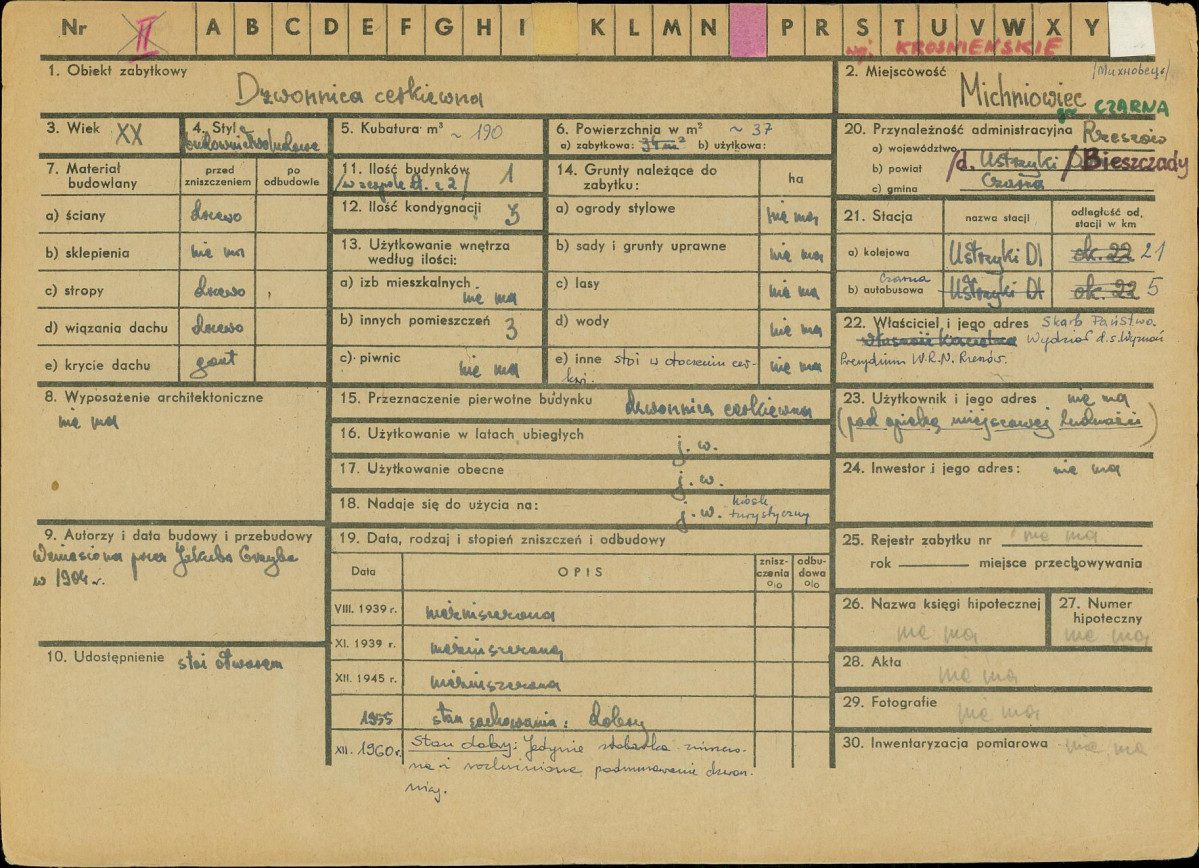 Nr II A B C D E F G H I K L M N P R S T U V W X Y
woj. KROŚNIEŃSKIE
1. Obiekt zabytkowy
Dzwonnica cerkiewna
2. Miejscowość
Michniowiec
gm CZARNA
3. Wiek XX
4. Styl
budownictwo ludowe
5. Kubatura m³ ~ 190
6. Powierzchnia w m² ~ 37
a) zabytkowa: b) użytkowa:
20. Przynależność administracyjna
a) województwo Rzeszów
b) powiat /d. Ustrzyki D/ Bieszczady
c) gmina Czarna
7. Materiał budowlany
przed zniszczeniem
po odbudowie
a) ściany drewo
b) sklepienia nie ma
c) stropy drewo
d) wiązania dachu drewo
e) krycie dachu gont
11. Ilość budynków 1
/w zespole A. z 2/
12. Ilość kondygnacji 3
13. Użytkowanie wnętrza według ilości:
a) izb mieszkalnych nie ma
b) innych pomieszczeń 3
c) piwnic nie ma
14. Grunty należące do zabytku:
ha
a) ogrody stylowe nie ma
b) sady i grunty uprawne nie ma
c) lasy nie ma
d) wody nie ma
e) inne stoi w otoczeniu cer-
kwi. nie ma
21. Stacja
nazwa stacji
odległość od, stacji w km
a) kolejowa Ustrzyki Dl ok. 22 21
Czarna
b) autobusowa Ustrzyki Dl ok. 22 5
22. Właściciel i jego adres Skarb Państwa.
Wydział d.s. Wyznań
Prezydium W.R.N. Rzeszów.
8. Wyposażenie architektoniczne
nie ma
15. Przeznaczenie pierwotne budynku dzwonnica cerkiewna
16. Użytkowanie w latach ubiegłych j. w.
17. Użytkowanie obecne j. w.
18. Nadaje się do użycia na: j. w. kiosk
turystyczny
23. Użytkownik i jego adres nie ma
(pod opieką miejscowej ludności)
24. Inwestor i jego adres: nie ma
9. Autorzy i data budowy i przebudowy
Wzniesiona przez Jakuba Grzyba
w 1904 r.
10. Udostępnienie stoi otworem
19. Data, rodzaj i stopień zniszczeń i odbudowy
Data
OPIS
zniszczenia %
odbudowa %
VIII. 1939 r. niezniszczona
XI. 1939 r. niezniszczona
XII. 1945 r. niezniszczona
1955 stan zachowania: dobry
XII. 1960 r. Stan dobry: Jedynie stolarka zniszczo-
na i rozluźnione podmurowanie dzwon-
nicy.
25. Rejestr zabytku nr nie ma
rok miejsce przechowywania
26. Nazwa księgi hipotecznej
nie ma
27. Numer hipoteczny
nie ma
28. Akta nie ma
29. Fotografie nie ma
30. Inwentaryzacja pomiarowa nie ma